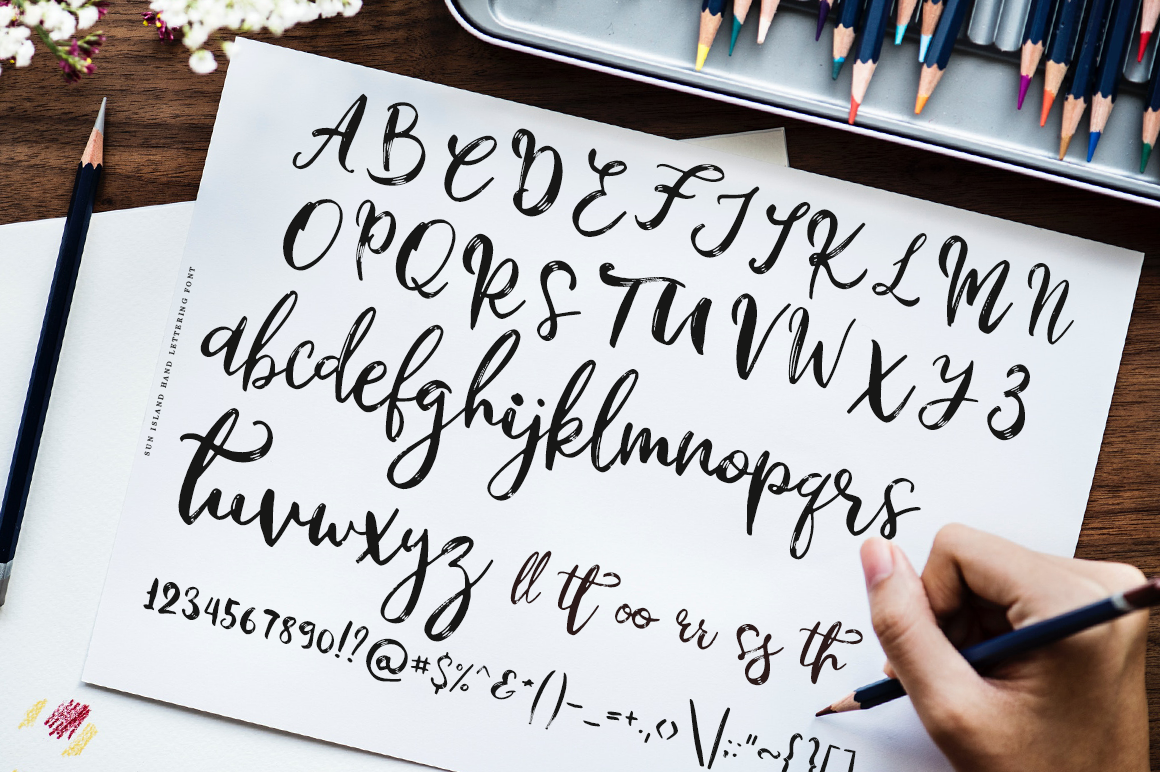 A B C D E F I J K L M N
O P Q R S T U V W X Y Z
abcdefghijklmnopqrs
tuvwxyz
ll tt oo rr ss th
1234567890!?@#$%^&*()-_=+.,<>\/:;"~{}[]
SUN ISLAND HAND LETTERING FONT